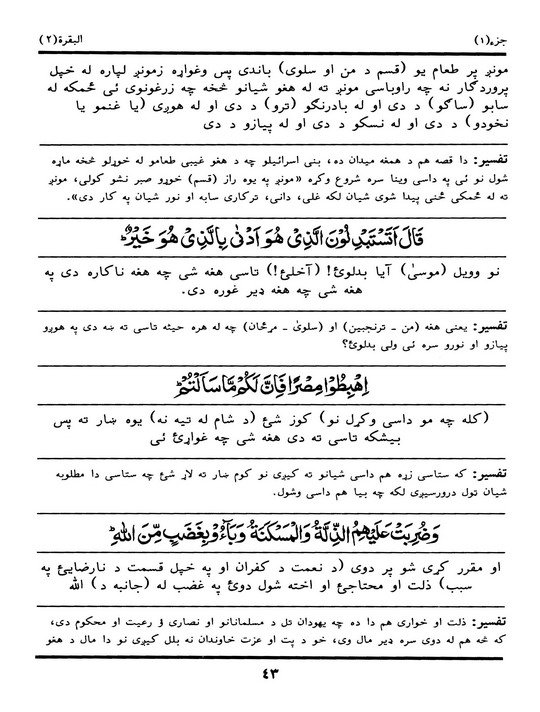 جزء(۱) البقرة(۲)
مونږ پر طعام يو (قسم د من او سلوی) باندی پس وغواړه زمونږ لپاره له خپل
پروردګار نه چه راوباسی مونږ ته له هغو شيانو څخه چه زرغونوی ئی ځمکه له
سابو (ساګو) د دی او له بادرنګو (ترو) د دی او له هوږی (يا غنمو يا
نخودو) د دی او له نسکو د دی او له پيازو د دی
تفسیر: دا قصه هم د همغه میدان ده، بنی اسرائیلو چه د هغو غیبی طعامو له خوړلو څخه ماړه
شول نو ئی په داسی وینا سره شروع وکړه «مونږ په یوه راز (قسم) خوړو صبر نشو کولی، مونږ
ته له ځمکی ځنی پیدا شوی شیان لکه غلی، دانی، ترکاری سابه او نور شیان په کار دی».
قَالَ اَتَسْتَبْدِلُوْنَ الَّذِیْ هُوَ اَدْنٰی بِالَّذِیْ هُوَ خَیْرٌؕ
نو وويل (موسیٰ) آيا بدلوئ! (آخلئ!) تاسی هغه شی چه هغه ناکاره دی په
هغه شی چه هغه ډير غوره دی.
تفسیر: یعنی هغه (من ـ ترنجبین) او (سلویٰ ـ مړځان) چه له هره حیثه تاسی ته ښه دی په هوږو
پیازو او نورو سره ئی ولی بدلوئ؟
اِهْبِطُوْا مِصْرًا فَاِنَّ لَكُمْ مَّا سَاَلْتُمْؕ
(کله چه مو داسی وکړل نو) کوز شئ (د شام له تيه نه) يوه ښار ته پس
بيشکه تاسی ته دی هغه شی چه غواړئ ئی
تفسیر: که ستاسی زړه هم داسی شیانو ته کیږی نو کوم ښار ته لاړ شئ چه ستاسی دا مطلوبه
شیان تول دررسیږی لکه چه بیا هم داسی وشول.
وَضُرِبَتْ عَلَیْهِمُ الذِّلَّةُ وَالْمَسْكَنَةُ وَبَآءُوْ بِغَضَبٍ مِّنَ اللّٰهِؕ
او مقرر کړی شو پر دوی (د نعمت د کفران او په خپل قسمت د نارضايئ په
سبب) ذلت او محتاجئ او اخته شول دوئ په غضب له (جانبه د) الله
تفسیر: ذلت او خواری هم دا ده چه یهودان تل د مسلمانانو او نصاری ؤ رعیت او محکوم دی،
که څه هم له دوی سره ډیر مال وی، خو د پت او عزت خاوندان نه بلل کیږی نو دا مال د هغو
۴۳